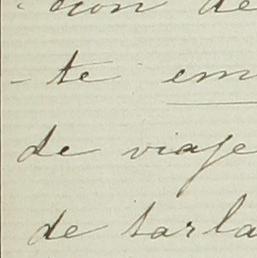 cion de
-te em
de viaje
de tarla